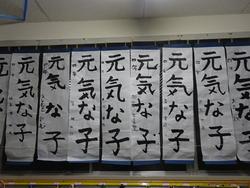 元気な子
元気な子
元気な子
元気な子
元気な子
元気な子
元気な子
元気な子
元気な子